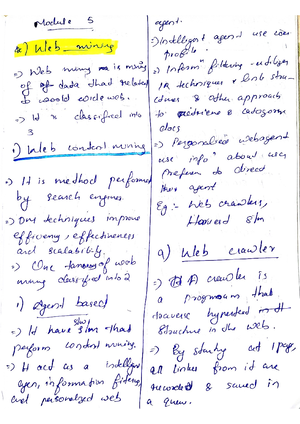 Module 5
*) Web mining
=) Web mining is mining
of data that related
to world wide web.
=) It is classified into
3
1) Web content mining
=) It is method performed
by search engines.
=) DM techniques improve
efficiency, effectiveness
and scalability.
=) One of web
mining classified into 2
1) Agent based
=) It have s/m that
perform content mining.
=) It act as a intelligent
agen, information filtering
and personalized web
agent.
=) Intelligent agent use user
profile.
=) Inform" filtering - utilizes
IR techniques & link stru-
ctures & other approach
to retrieve & categorize
docs
=) Personalized webagent
use info" about user
preferen to direct
their agent
Eg :- Web crawlers,
Harvest s/m
a) Web crawler
=) A crawler is
a program that
traverse hypertext
structure in the web.
=) By starting at 1 page,
all links from it are
recorded & saved in
a queue.